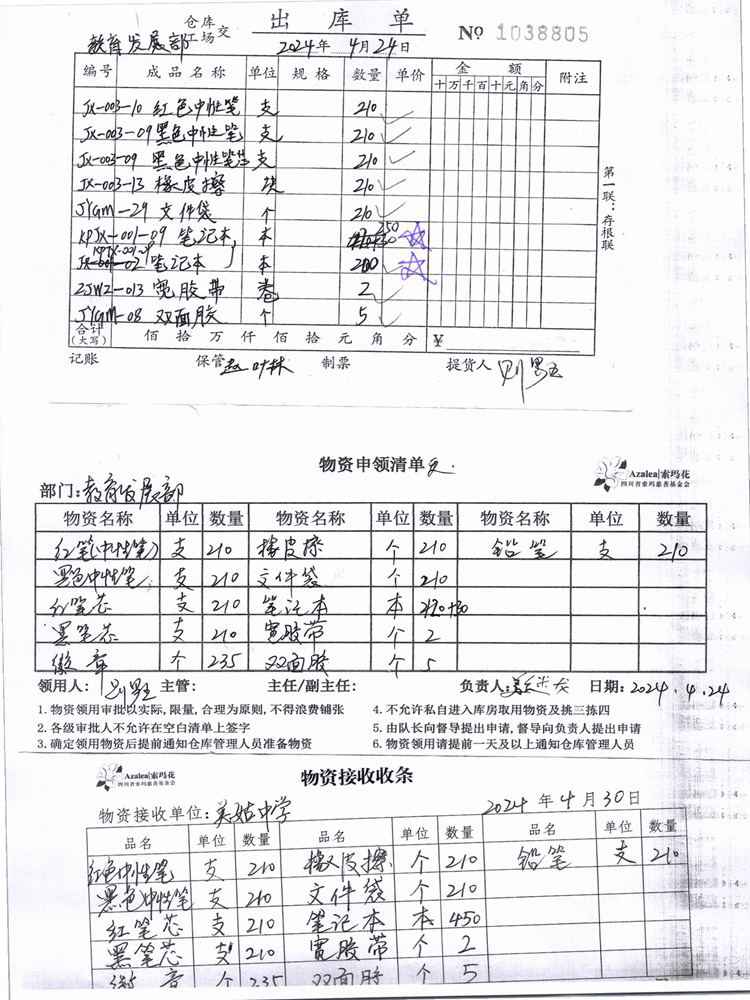 仓库
工场 交 出库单 № 1038805
教育发展部 2024年 4月24日
编号 成品名称 单位 规格 数量 单价 金额 附注
十万千百十元角分
JX-003-10 红色中性笔 支 210
JX-003-09 黑色中性笔 支 210
JX-003-09 黑色中性笔芯 支 210
JX-003-13 橡皮擦 块 210
JYGM-29 文件袋 个 210
KPJX-001-09 笔记本 本 250
笔记本 本 200
ZJWZ-013 宽胶带 卷 2
JYGM-08 双面胶 个 5
合计(大写) 佰拾万仟佰拾元角分 ¥
第一联:存根联
记账 保管 制票 提货人
物资申领清单
Azalea|索玛花
四川省索玛慈善基金会
部门:教育发展部
物资名称 单位 数量 物资名称 单位 数量 物资名称 单位 数量
红笔(中性笔) 支 210 橡皮擦 个 210 铅笔 支 210
黑色中性笔 支 210 文件袋 个 210
红笔芯 支 210 笔记本 本
黑笔芯 支 210 宽胶带 个 2
徽章 个 235 双面胶 个 5
领用人: 主管: 主任/副主任: 负责人: 日期:2024.4.24
1.物资领用审批以实际,限量,合理为原则,不得浪费铺张 4.不允许私自进入库房取用物资及挑三拣四
2.各级审批人不允许在空白清单上签字 5.由队长向督导提出申请,督导向负责人提出申请
3.确定领用物资后提前通知仓库管理人员准备物资 6.物资领用请提前一天及以上通知仓库管理人员
Azalea|索玛花
四川省索玛慈善基金会
物资接收收条
物资接收单位:美姑中学 2024年4月30日
品名 单位 数量 品名 单位 数量 品名 单位 数量
红色中性笔 支 210 橡皮擦 个 210 铅笔 支 210
黑色中性笔 支 210 文件袋 个 210
红笔芯 支 210 笔记本 本 450
黑笔芯 支 210 宽胶带 个 2
徽章 个 235 双面胶 个 5